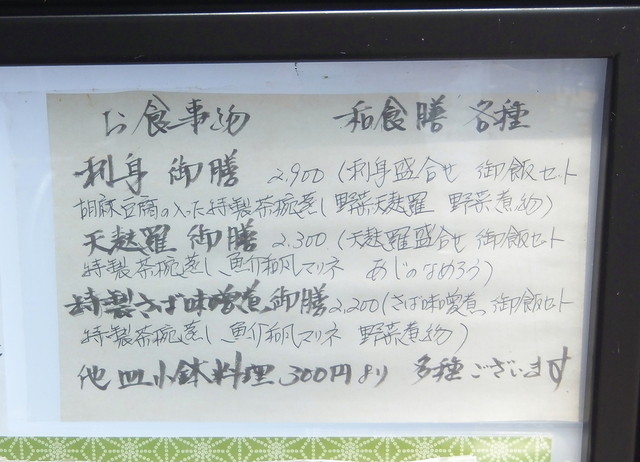 お食事物 和食膳 各種
刺身 御膳 2,900 (刺身盛合せ 御飯セット
胡麻豆腐の入った特製茶碗蒸し 野菜天麩羅 野菜煮物)
天麩羅 御膳 2,300 (天麩羅盛合せ 御飯セット
特製茶碗蒸し 魚介和風マリネ あじのなめろう)
特製さば味噌煮御膳 2,200 (さば味噌煮 御飯セット
特製茶碗蒸し 魚介和風マリネ 野菜煮物)
他 皿小鉢料理 300円より 多種ございます